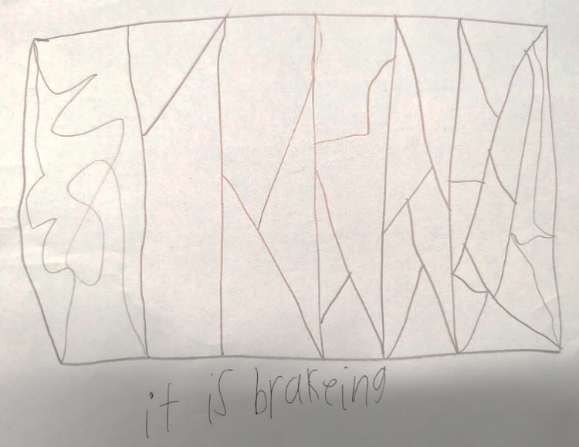 it is brakeing